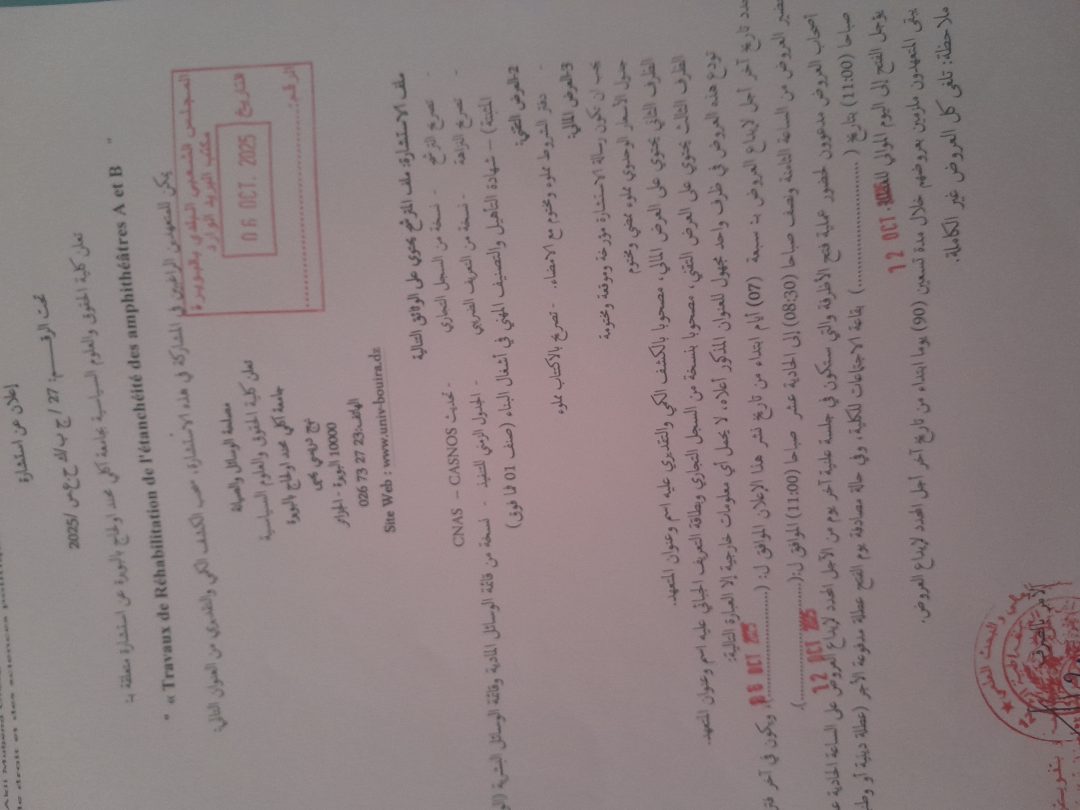 de droit et des sciences
إعلان عن استشارة
تحت الرقم: 27 / ج ب/ك ح ع س /2025
تعلن كلية الحقوق والعلوم السياسية بجامعة آكلي محند أولحاج بالبويرة عن استشارة متعلقة بـ:
« Travaux de Réhabilitation de l'étanchéité des amphithéâtres A et B »
يمكن للمتعهدين الراغبين في المشاركة في هذه الاستشارة، سحب الكشف الكمي والتقديري من العنوان التالي:
المجلس الشعبي البلدي بالبويرة
مكتب البريد الوارد
التاريخ
06 OCT. 2025
الرقم:
مصلحة الوسائل والصيانة
تعلن كلية الحقوق والعلوم السياسية
جامعة آكلي محند أولحاج بالبويرة
نهج دريسي يحيى
10000 البويرة - الجزائر
الهاتف: 026 73 27 23
Site Web : www.univ-bouira.dz
ملف الاستشارة: ملف الترشح يحتوي على الوثائق التالية
- تصريح الترشح - نسخة من السجل التجاري - تحديث CNAS – CASNOS
- تصريح النزاهة - نسخة من التعريف الضريبي - الجدول الزمني للتنفيذ - نسخة من قائمة الوسائل المادية وقائمة الوسائل البشرية
المثبتة) – شهادة التأهيل والتصنيف المهني في أشغال البناء (صنف 01 فما فوق)
2-العرض التقني:
- دفتر الشروط مملوء ومختوم مع الامضاء. - تصريح بالاكتتاب مملوء
3-العرض المالي:
يجب ان يكون رسالة الاستشارة مؤرخة وموقعة ومختومة
جدول الأسعار الوحدوي مملوء ممضي ومختوم
الظرف الثاني يحتوي على العرض المالي، مصحوبا بالكشف الكمي والتقديري عليه اسم وعنوان المتعهد.
الظرف الثالث يحتوي على العرض التقني، مصحوبا بنسخة من السجل التجاري وبطاقة التعريف الجبائي عليه اسم وعنوان المتعهد.
تودع هذه العروض في ظرف واحد مجهول للعنوان المذكور أعلاه، لا يحمل أي معلومات خارجية إلا العبارة التالية:
حدد تاريخ آخر أجل لإيداع العروض بـ سبعة (07) أيام ابتداء من تاريخ نشر هذا الإعلان الموافق ل: (06 OCT 2025)، ويكون في آخر
تحضير العروض من الساعة الثامنة ونصف صباحا (08:30) إلى الحادية عشر صباحا (11:00) الموافق ل:(12 OCT 2025).
أصحاب العروض مدعوون لحضور عملية فتح الأظرفة والتي ستكون في جلسة علنية آخر يوم من الأجل المحدد لإيداع العروض على الساعة الحادية
صباحا (11:00) بتاريخ (..............) بقاعة الاجتماعات للكلية، وفي حالة مصادفة يوم الفتح عطلة مدفوعة الأجر (عطلة دينية أو
يؤجل الفتح إلى اليوم الموالي للعطلة. 12 OCT 2025
يبقى المتعهدون ملزمين بعروضهم خلال مدة تسعين (90) يوما ابتداء من تاريخ آخر أجل المحدد لإيداع العروض.
ملاحظة: تلغى كل العروض غير الكاملة.
الآمر بالصرف